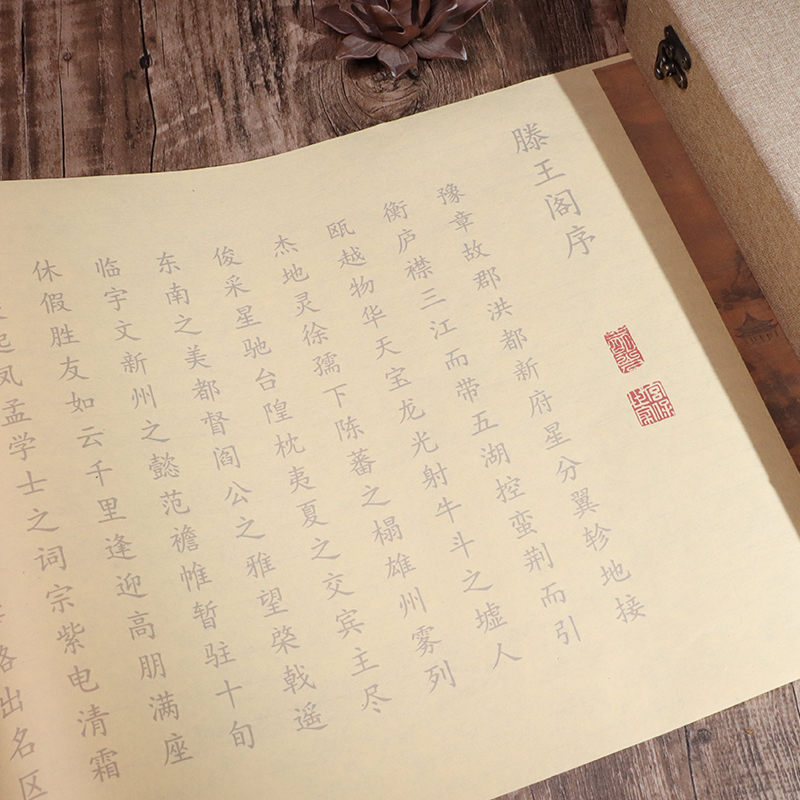 滕王阁序
豫章故郡洪都新府星分翼轸地接
衡庐襟三江而带五湖控蛮荆而引
瓯越物华天宝龙光射牛斗之墟人
杰地灵徐孺下陈蕃之榻雄州雾列
俊采星驰台隍枕夷夏之交宾主尽
东南之美都督阎公之雅望棨戟遥
临宇文新州之懿范襜帷暂驻十旬
休假胜友如云千里逢迎高朋满座
起凤孟学士之词宗紫电清霜
路出名区